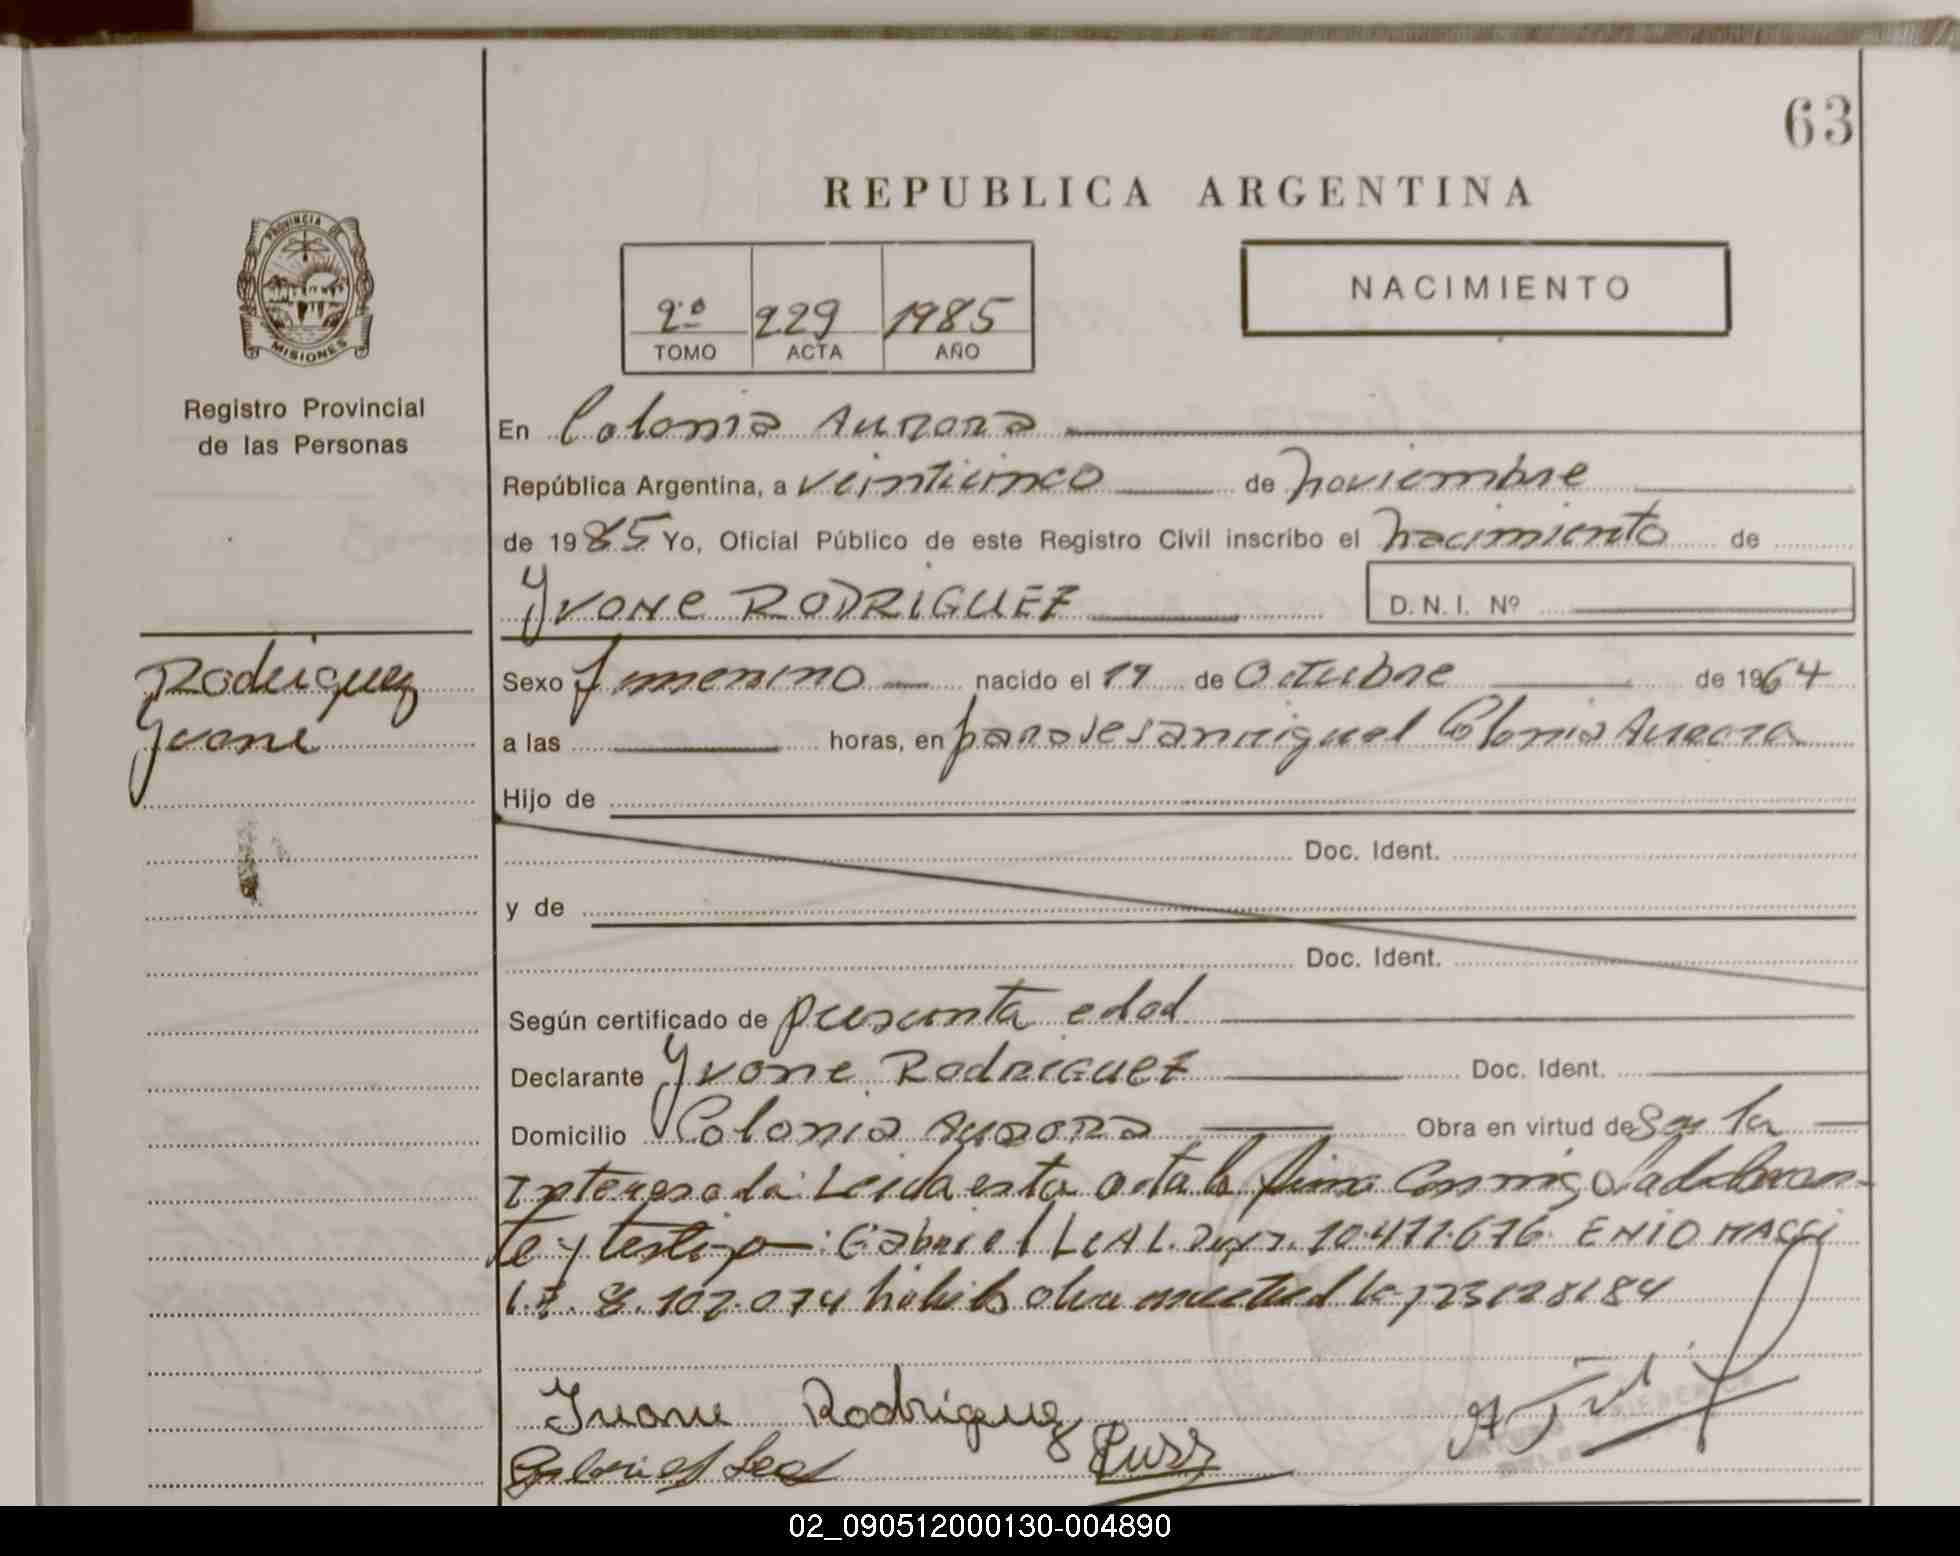 63
REPUBLICA ARGENTINA
PROVINCIA DE
MISIONES
Registro Provincial
de las Personas
2º 229 1985
TOMO ACTA AÑO
NACIMIENTO
En Colonia Aurora
República Argentina, a veinticinco de noviembre
de 1985 Yo, Oficial Público de este Registro Civil inscribo el nacimiento de
Yvone RODRIGUEZ D. N. I. Nº
Rodriguez
Yvone
Sexo femenino nacido el 19 de Octubre de 1964
a las horas, en Colonia Aurora
Hijo de
Doc. Ident.
y de
Doc. Ident.
Según certificado de presunta edad
Declarante Yvone Rodriguez Doc. Ident.
Domicilio Colonia Aurora Obra en virtud de Ser la
Interesada Leida esta acta la firma Conmigo la declaran-
te y testigo: Gabriel LEAL 10.477.676 ENIO
8.102.074
Yvone Rodriguez
Gabriel Leal
02_090512000130-004890